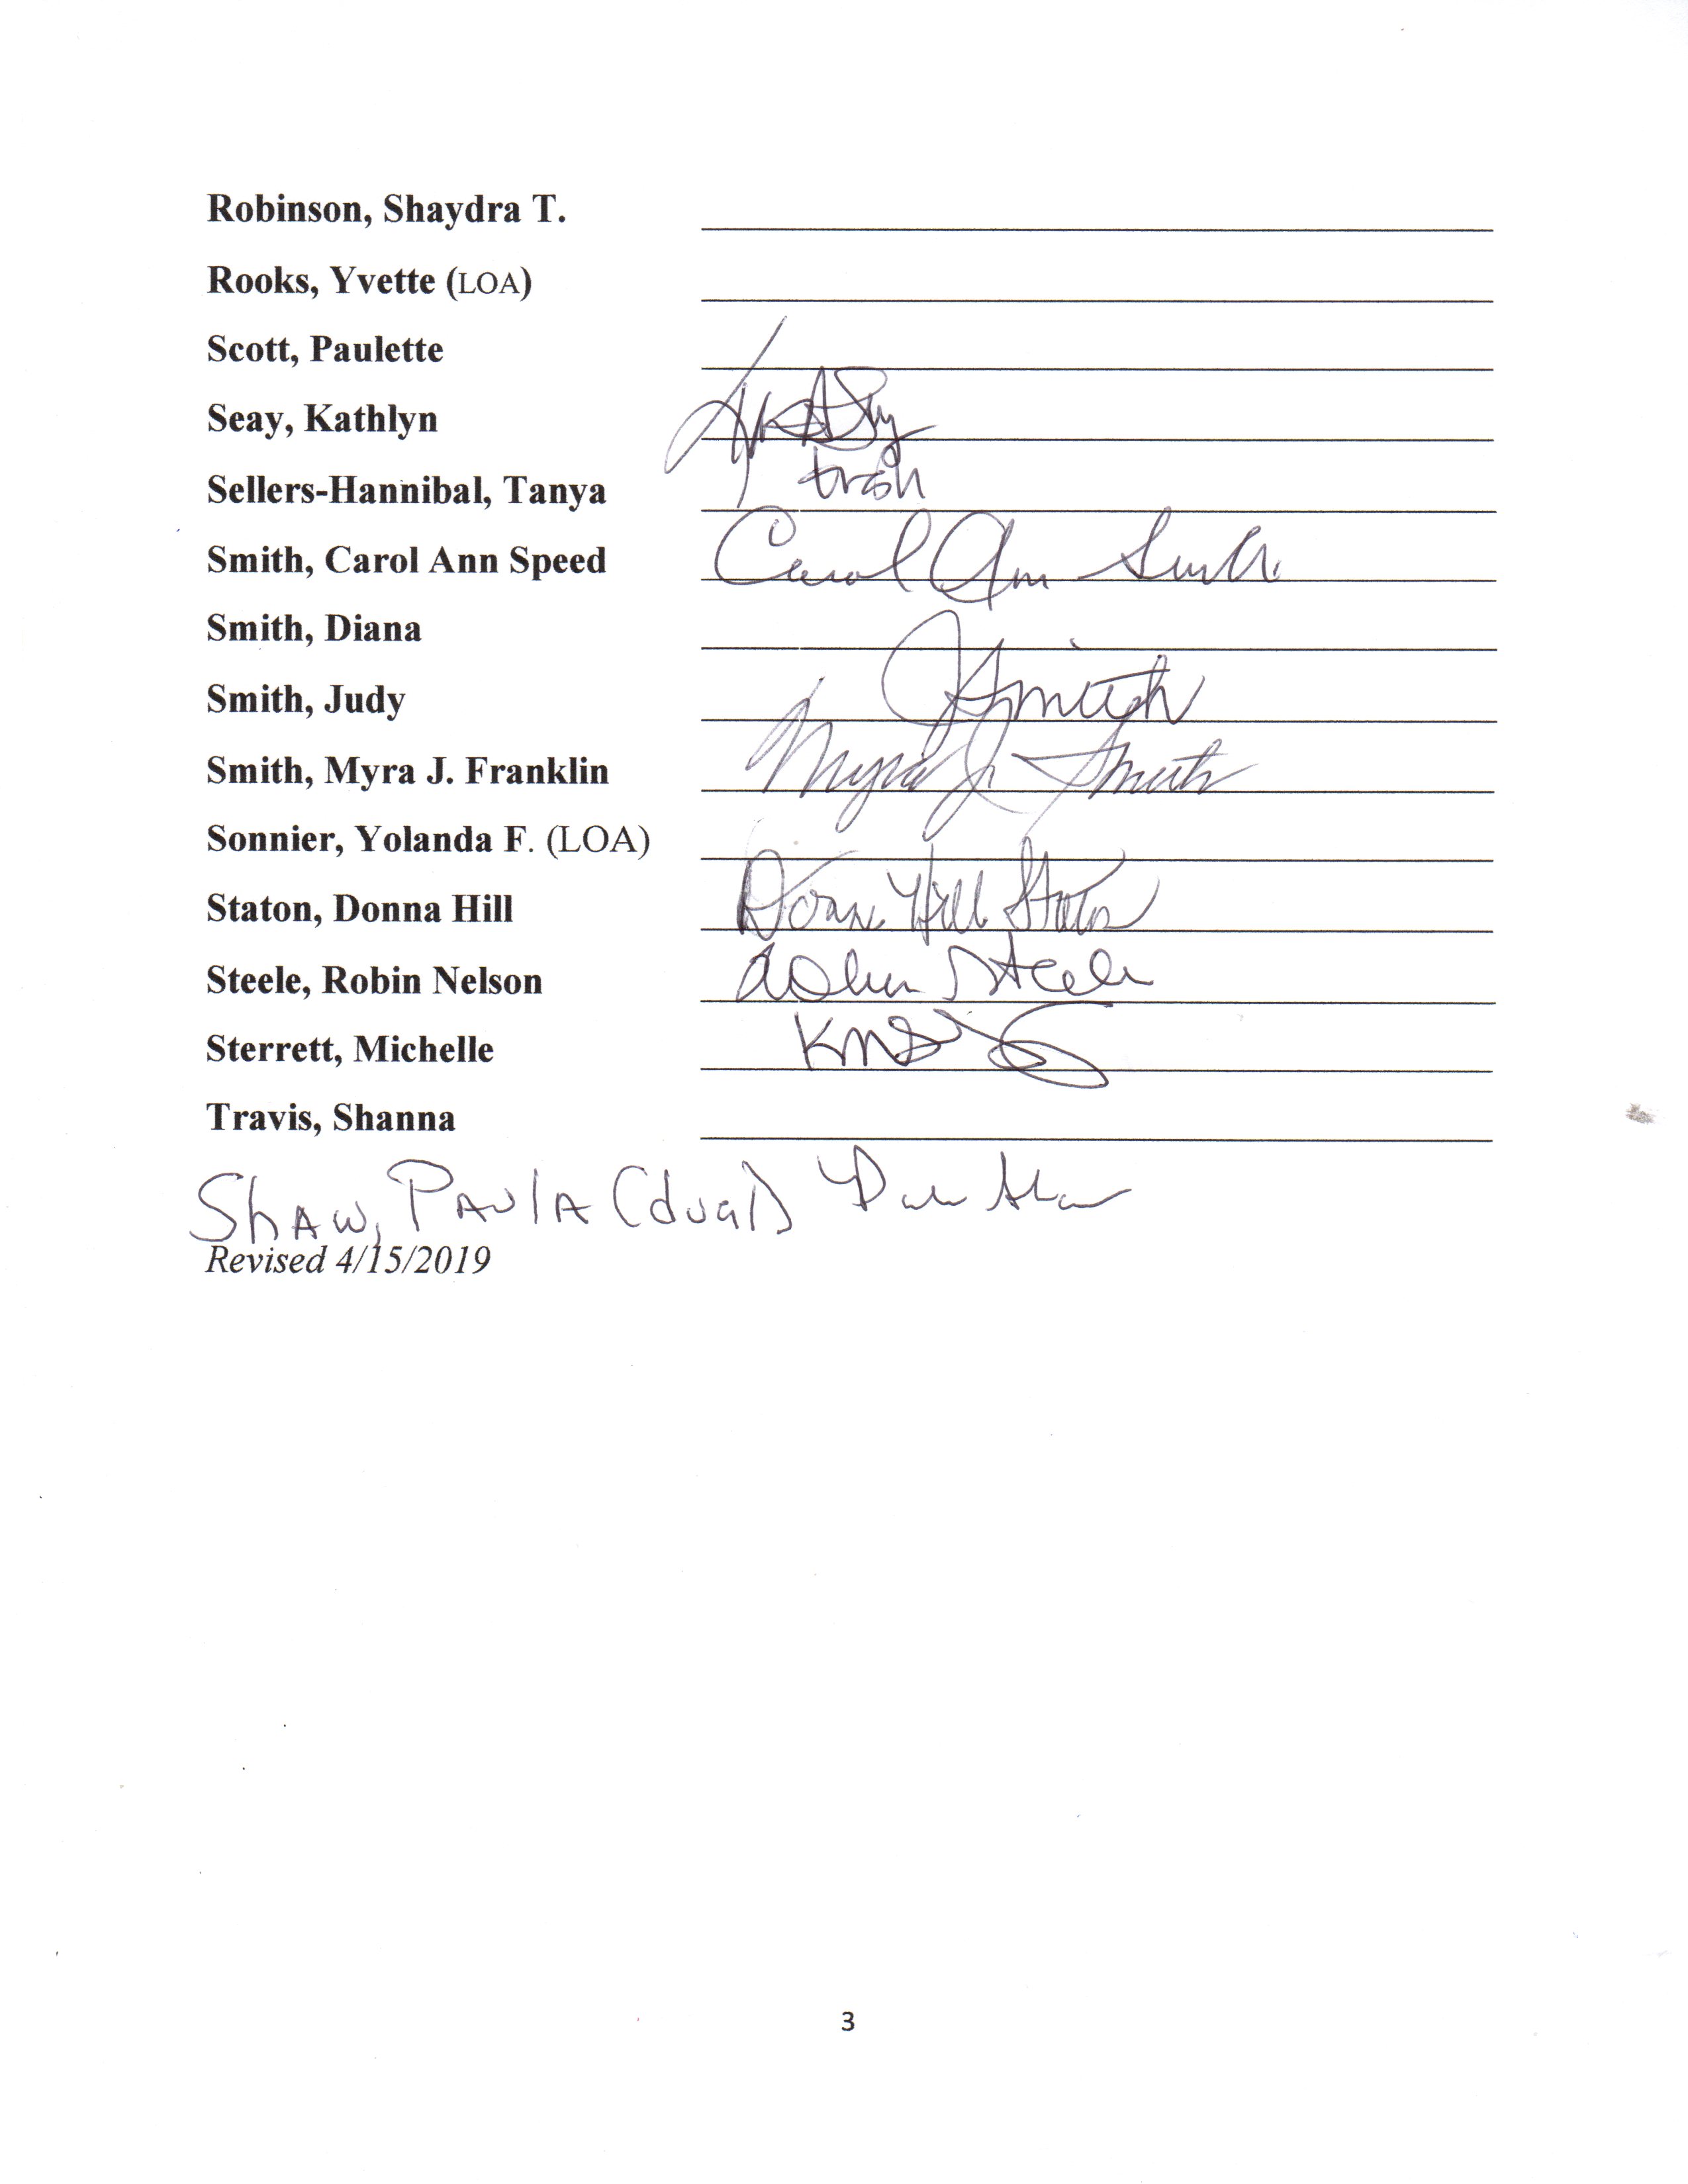 Robinson, Shaydra T.
Rooks, Yvette (LOA)
Scott, Paulette
Seay, Kathlyn
Sellers-Hannibal, Tanya tsh
Smith, Carol Ann Speed Carol Ann Smith
Smith, Diana
Smith, Judy JSmith
Smith, Myra J. Franklin Myra J. Smith
Sonnier, Yolanda F. (LOA)
Staton, Donna Hill Donna Hill Staton
Steele, Robin Nelson Robin Steele
Sterrett, Michelle
Travis, Shanna
Shaw, Paula (dual) Paula Shaw
Revised 4/15/2019
3